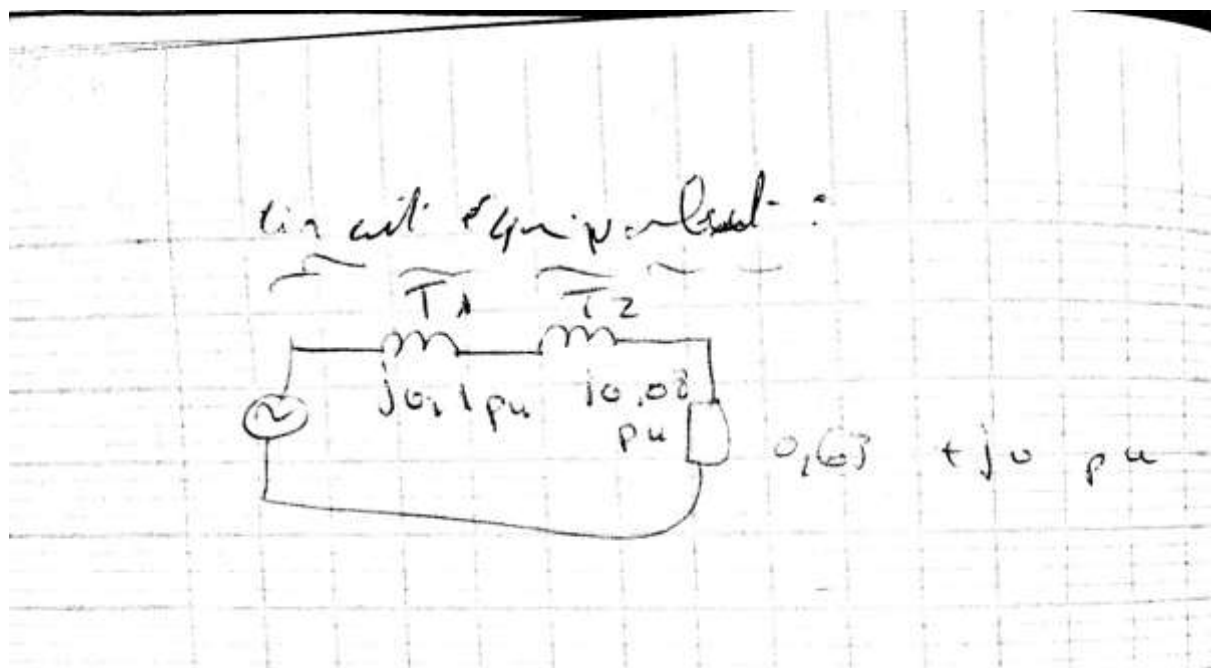 circuit équivalent :
T1 T2
j0,1 pu j0,08
pu
0,63 + j0 pu